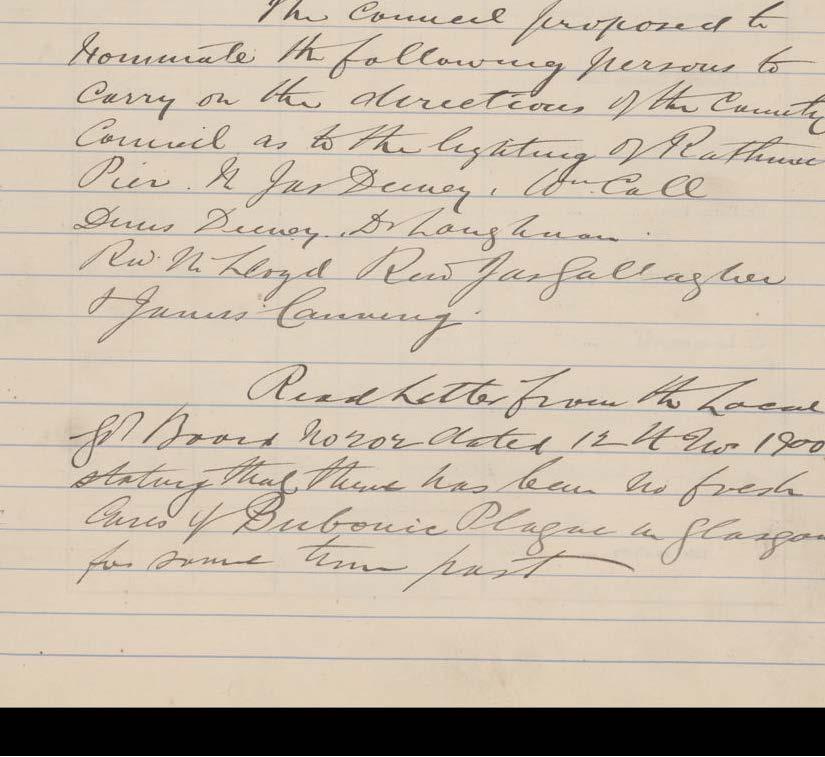 The Council proposed to
Nominate the following persons to
Carry on the directions of the County
Council as to the lighting of Rathmu
Pier. Jas Deeney, Wm Call
Denis Deeney. Dr Loughnan.
Rev. Lloyd Rev Jas Gallagher
& James Canning.
Read Letter from the Local
Govt Board dated 12th Nov 1900
stating that there has been no fresh
Cases of Bubonic Plague in Glasgow
for some time past